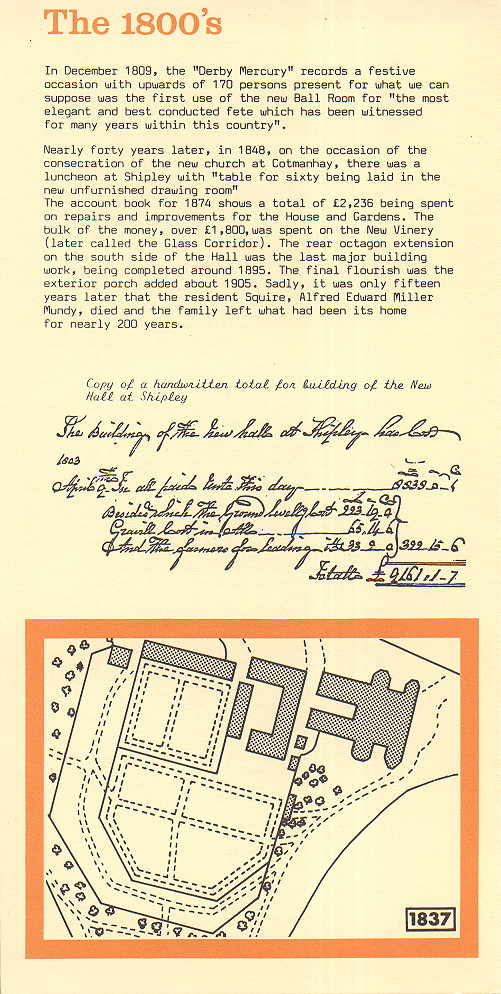 The 1800's
In December 1809, the "Derby Mercury" records a festive
occasion with upwards of 170 persons present for what we can
suppose was the first use of the new Ball Room for "the most
elegant and best conducted fete which has been witnessed
for many years within this country".
Nearly forty years later, in 1848, on the occasion of the
consecration of the new church at Cotmanhay, there was a
luncheon at Shipley with "table for sixty being laid in the
new unfurnished drawing room"
The account book for 1874 shows a total of £2,236 being spent
on repairs and improvements for the House and Gardens. The
bulk of the money, over £1,800, was spent on the New Vinery
(later called the Glass Corridor). The rear octagon extension
on the south side of the Hall was the last major building
work, being completed around 1895. The final flourish was the
exterior porch added about 1905. Sadly, it was only fifteen
years later that the resident Squire, Alfred Edward Miller
Mundy, died and the family left what had been its home
for nearly 200 years.
Copy of a handwritten total for building of the New
Hall at Shipley
The Building of the new hall at Shipley has Cost
April In all paid unto this day
Besides which the Ground levelly Cost
Gravill Cost in
And the farmers for Leading 399-15-6
Totall £ 9161-1-7
1837